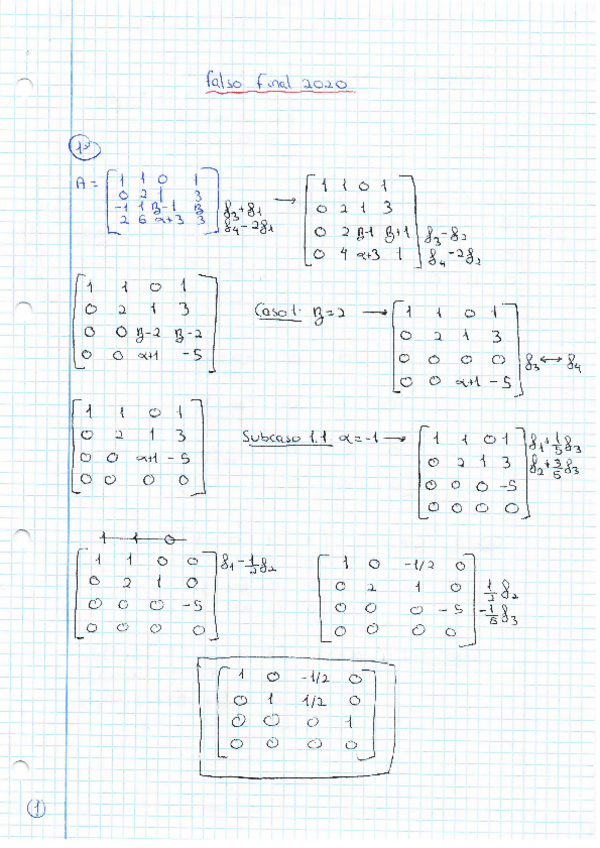 Falso Final 2020
1º
A = [ 1 1 0 1
0 2 1 3
-1 1 β-1 β
2 6 α+3 3 ] f3+f1 f4-2f1 →
[ 1 1 0 1
0 2 1 3
0 2 β-1 β+1
0 4 α+3 1 ] f3-f2 f4-2f2
[ 1 1 0 1
0 2 1 3
0 0 β-2 β-2
0 0 α+1 -5 ]
Caso 1: β=2 →
[ 1 1 0 1
0 2 1 3
0 0 0 0
0 0 α+1 -5 ] f3 ↔ f4
[ 1 1 0 1
0 2 1 3
0 0 α+1 -5
0 0 0 0 ]
Subcaso 1.1 α=-1 →
[ 1 1 0 1
0 2 1 3
0 0 0 -5
0 0 0 0 ] f1+1/5f3 f2+3/5f3
[ 1 1 0 0
0 2 1 0
0 0 0 -5
0 0 0 0 ] f1-1/2f2
[ 1 0 -1/2 0
0 2 1 0
0 0 0 -5
0 0 0 0 ] 1/2f2 -1/5f3
[ 1 0 -1/2 0
0 1 1/2 0
0 0 0 1
0 0 0 0 ]
1